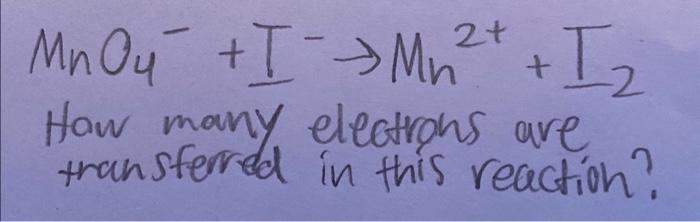 MnO₄⁻ + I⁻ → Mn²⁺ + I₂
How many electrons are
transferred in this reaction?